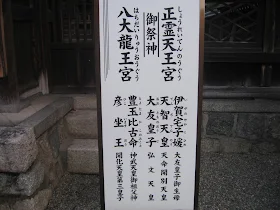 正霊天王宮
しょうれいてんのうぐう
御祭神
八大龍王宮
はちだいりゅうおうぐう
伊賀宅子媛 大友皇子御生母
天智天皇 天命開別天皇
大友皇子 弘文天皇
豊玉比古命 神武天皇御祖父神
彦坐王 開化天皇第三皇子